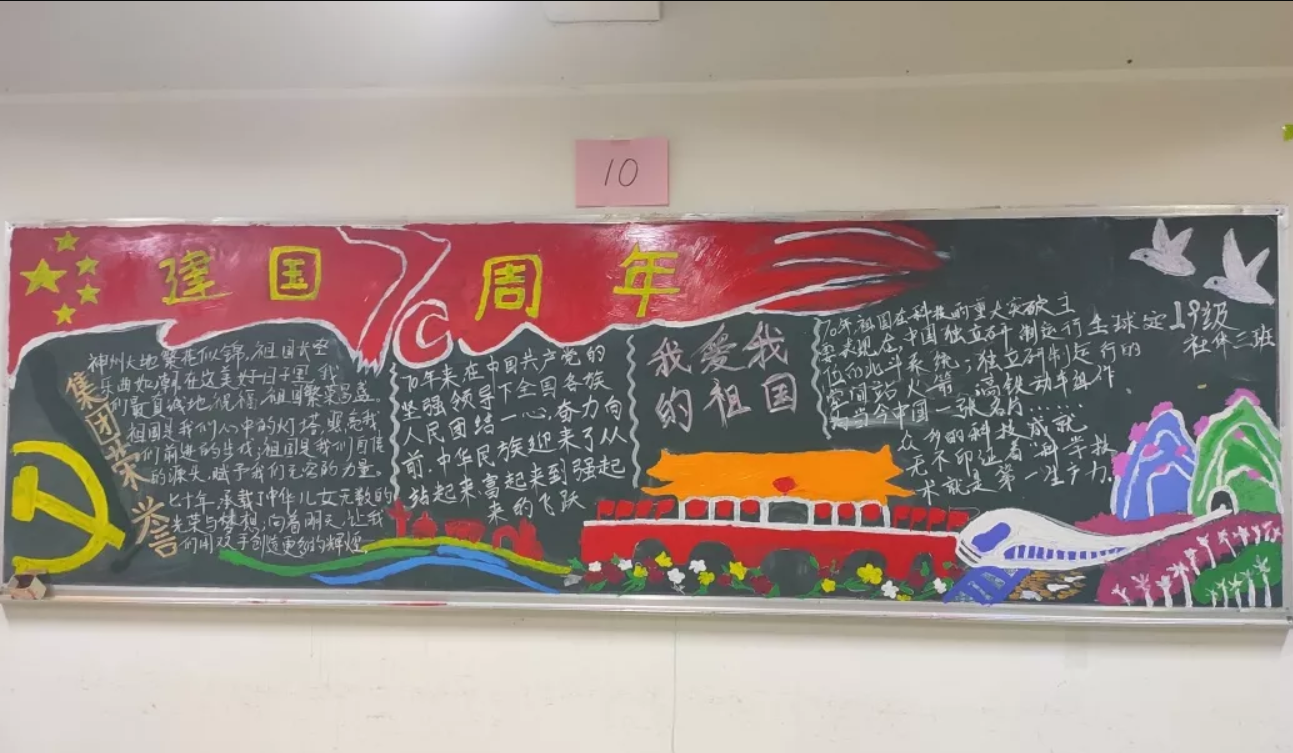 10
建国70周年
集团荣誉
神州大地繁花似锦,祖国长空
乐曲如潮,在这美好日子里,我
们最真诚地祝福,祖国繁荣昌盛。
祖国是我们心中的灯塔,照亮我
们前进的生戏;祖国是我们自信
的源头,赋予我们无穷的力量。
七十年,承载了中华儿女无数的
光荣与梦想,向着明天,让我
们用双手创造更多的辉煌
70年来,在中国共产党的
坚强领导下全国各族
人民团结一心,奋力向
前,中华民族迎来了从
站起来,富起来到强起
来的飞跃
我爱我
的祖国
70年,祖国在科技的重大突破主
要表现在,中国独立研制运行全球定
位的北斗系统;独立研制运行的
空间站,火箭,高铁动车组作
为当今中国一张名片……
众多的科技成就
无不印证着"科学技
术就是第一生产力。
19级
社体三班